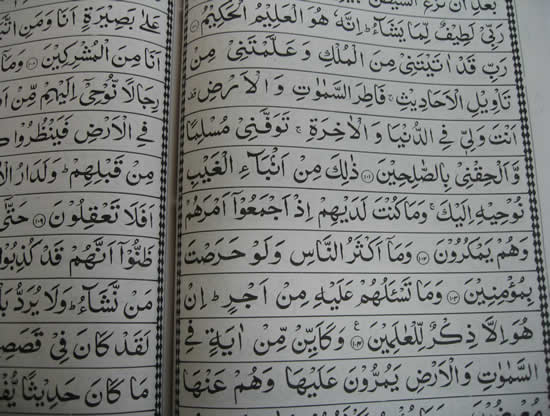 بعد ان نزغ الشيطن
رَبِّىۡ لَطِيۡفٌ لِّمَا يَشَآءُ‌ؕ اِنَّهٗ هُوَ الۡعَلِيۡمُ الۡحَكِيۡمُ ﴿۱۰۰﴾
رَبِّ قَدۡ اٰتَيۡتَنِىۡ مِنَ الۡمُلۡكِ وَ عَلَّمۡتَنِىۡ مِنۡ
تَاۡوِيۡلِ الۡاَحَادِيۡثِ‌ۚ فَاطِرَ السَّمٰوٰتِ وَ الۡاَرۡضِ
اَنۡتَ وَلِىّٖ فِى الدُّنۡيَا وَ الۡاٰخِرَةِ‌ۚ تَوَفَّنِىۡ مُسۡلِمًا
وَّ اَلۡحِقۡنِىۡ بِالصّٰلِحِيۡنَ ﴿۱۰۱﴾ ذٰلِكَ مِنۡ اَنۡۢبَآءِ الۡغَيۡبِ
نُوۡحِيۡهِ اِلَيۡكَ‌ۚ وَمَا كُنۡتَ لَدَيۡهِمۡ اِذۡ اَجۡمَعُوۡۤا اَمۡرَهُمۡ
وَهُمۡ يَمۡكُرُوۡنَ ﴿۱۰۲﴾ وَمَاۤ اَكۡثَرُ النَّاسِ وَلَوۡ حَرَصۡتَ
بِمُؤۡمِنِيۡنَ ﴿۱۰۳﴾ وَمَا تَسۡـَٔـلُهُمۡ عَلَيۡهِ مِنۡ اَجۡرٍ‌ؕ اِنۡ
هُوَ اِلَّا ذِكۡرٌ لِّلۡعٰلَمِيۡنَ ﴿۱۰۴﴾ وَكَاَيِّنۡ مِّنۡ اٰيَةٍ فِى
السَّمٰوٰتِ وَالۡاَرۡضِ يَمُرُّوۡنَ عَلَيۡهَا وَهُمۡ عَنۡهَا
عَلٰى بَصِيۡرَةٍ اَنَا وَمَنِ
اَنَا مِنَ الۡمُشۡرِكِيۡنَ ﴿۱۰۸﴾ وَمَاۤ
رِجَالًا نُّوۡحِىۡۤ اِلَيۡهِمۡ مِّنۡ
فِى الۡاَرۡضِ فَيَنۡظُرُوۡا
مِنۡ قَبۡلِهِمۡ‌ؕ وَلَدَارُ
اَفَلَا تَعۡقِلُوۡنَ ﴿۱۰۹﴾ حَتّٰۤى
ظَنُّوۡۤا اَنَّهُمۡ قَدۡ كُذِبُوۡا
مَنۡ نَّشَآءُ‌ؕ وَلَا يُرَدُّ
لَقَدۡ كَانَ فِىۡ
مَا كَانَ حَدِيۡثًا